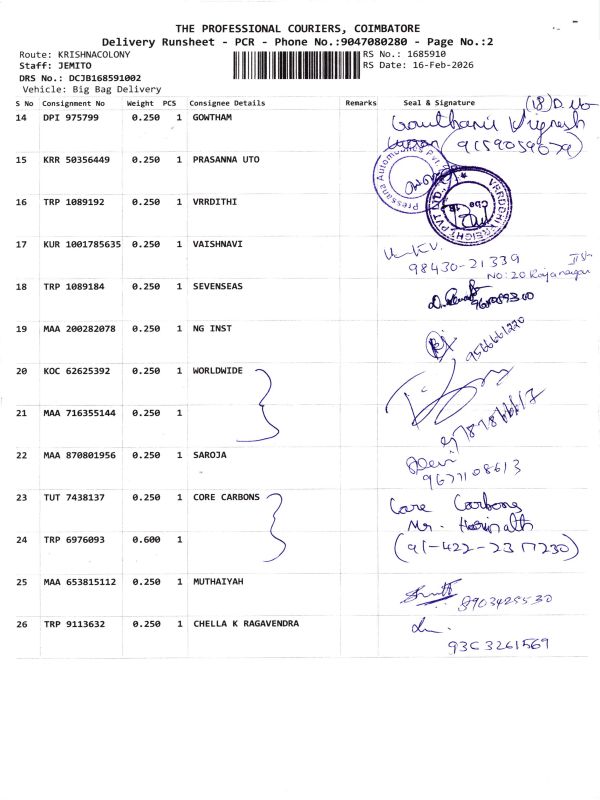 THE PROFESSIONAL COURIERS, COIMBATORE
Delivery Runsheet - PCR - Phone No.:9047080280 - Page No.:2
Route: KRISHNACOLONY
RS No.: 1685910
Staff: JEMITO
RS Date: 16-Feb-2026
DRS No.: DCJB168591002
Vehicle: Big Bag Delivery
S No Consignment No Weight PCS Consignee Details Remarks Seal & Signature
(18)
14 DPI 975799 0.250 1 GOWTHAM
15 KRR 50356449 0.250 1 PRASANNA UTO
16 TRP 1089192 0.250 1 VRRDITHI
17 KUR 1001785635 0.250 1 VAISHNAVI
98430-21339
NO:20 Rajanagar
18 TRP 1089184 0.250 1 SEVENSEAS
19 MAA 200282078 0.250 1 NG INST
9566661220
20 KOC 62625392 0.250 1 WORLDWIDE
21 MAA 716355144 0.250 1
22 MAA 870801956 0.250 1 SAROJA
Devi
9677108613
23 TUT 7438137 0.250 1 CORE CARBONS
Core Carbons
Mr. Harinath
24 TRP 6976093 0.600 1
(91-422-2317230)
25 MAA 653815112 0.250 1 MUTHAIYAH
8903425530
26 TRP 9113632 0.250 1 CHELLA K RAGAVENDRA
93C3261569